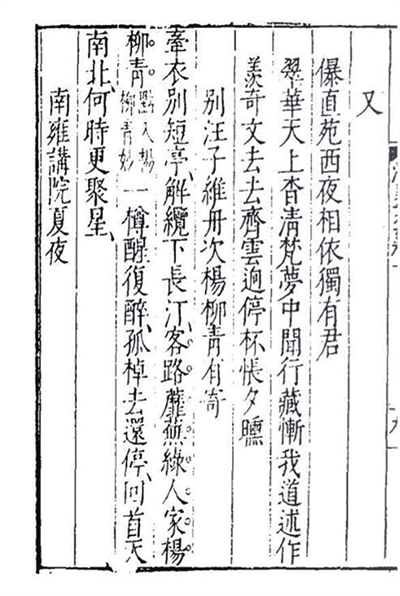 又
儤直苑西夜相依獨有君
翠華天上杳清梵夢中聞行藏慚我道述作
羨奇文去去齊雲逈停杯悵夕曛
别汪子維舟次楊柳青有寄
牽衣别短亭解纜下長汀客路蘼蕪綠人家楊
柳青點入楊柳青妙一樽醒復醉孤棹去還停回首天
南北何時更聚星
南雍講院夏夜